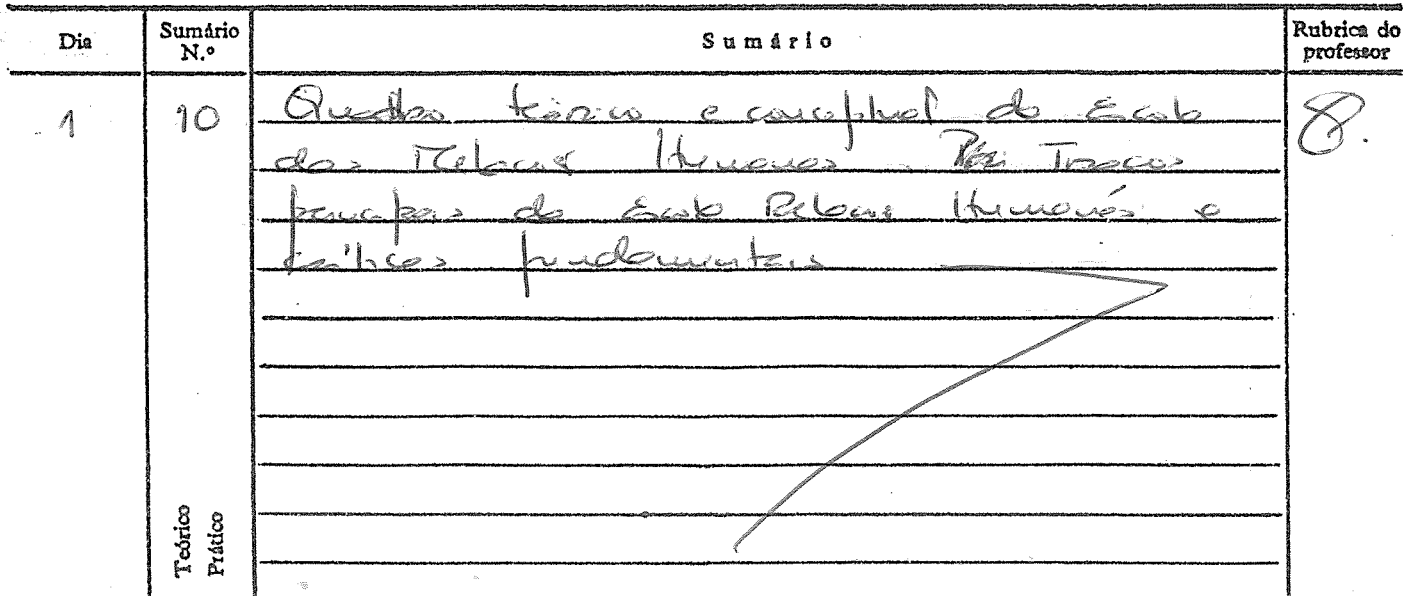 Dia Sumário N.º Sumário Rubrica do professor
1 10 Quadro teórico e conceptual da Escola
das Relações Humanas Traços
principais da Escola Relações Humanas e
críticas fundamentais
Teórico
Prático